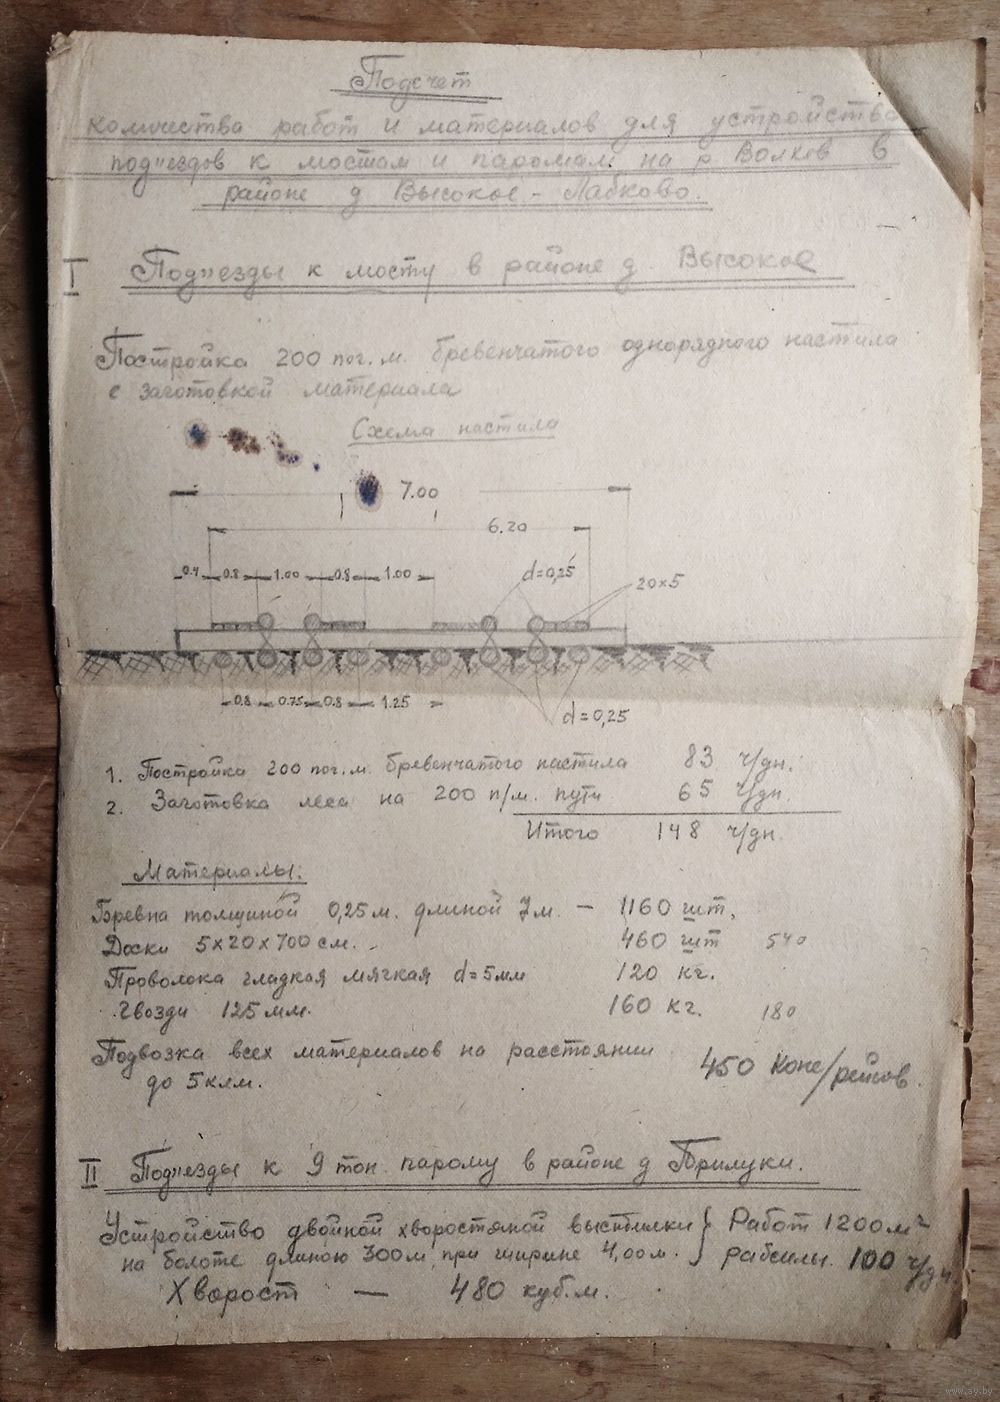 Подсчет
количества работ и материалов для устройства
подъездов к мостам и паромам на р. Волхов в
районе д Высокое - Лабково.
I Подъезды к мосту в районе д. Высокое
Постройка 200 пог. м. бревенчатого однорядного настила
с заготовкой материала
Схема настила
7.00
6.20
0.4 0.8 1.00 0.8 1.00 d=0,25 20×5
0.8 0.75 0.8 1.25 d=0,25
1. Постройка 200 пог. м. бревенчатого настила 83 ч/дн.
2. Заготовка леса на 200 п/м. пути 65 ч/дн.
Итого 148 ч/дн.
Материалы:
Бревна толщиной 0,25 м. длиной 7 м. — 1160 шт.
Доски 5×20×700 см. 460 шт 540
Проволока гладкая мягкая d=5мм 120 кг.
Гвозди 125 мм. 160 кг. 180
Подвозка всех материалов на расстоянии
до 5 клм. 450 Коне/рейсов.
II Подъезды к 9 тон. парому в районе д Прилуки.
Устройство двойной хворостяной выстилки } Работ 1200 м²
на болоте длиною 300м при ширине 4,00м. рабсилы. 100 ч/дн.
Хворост — 480 куб. м.
www.ay.by